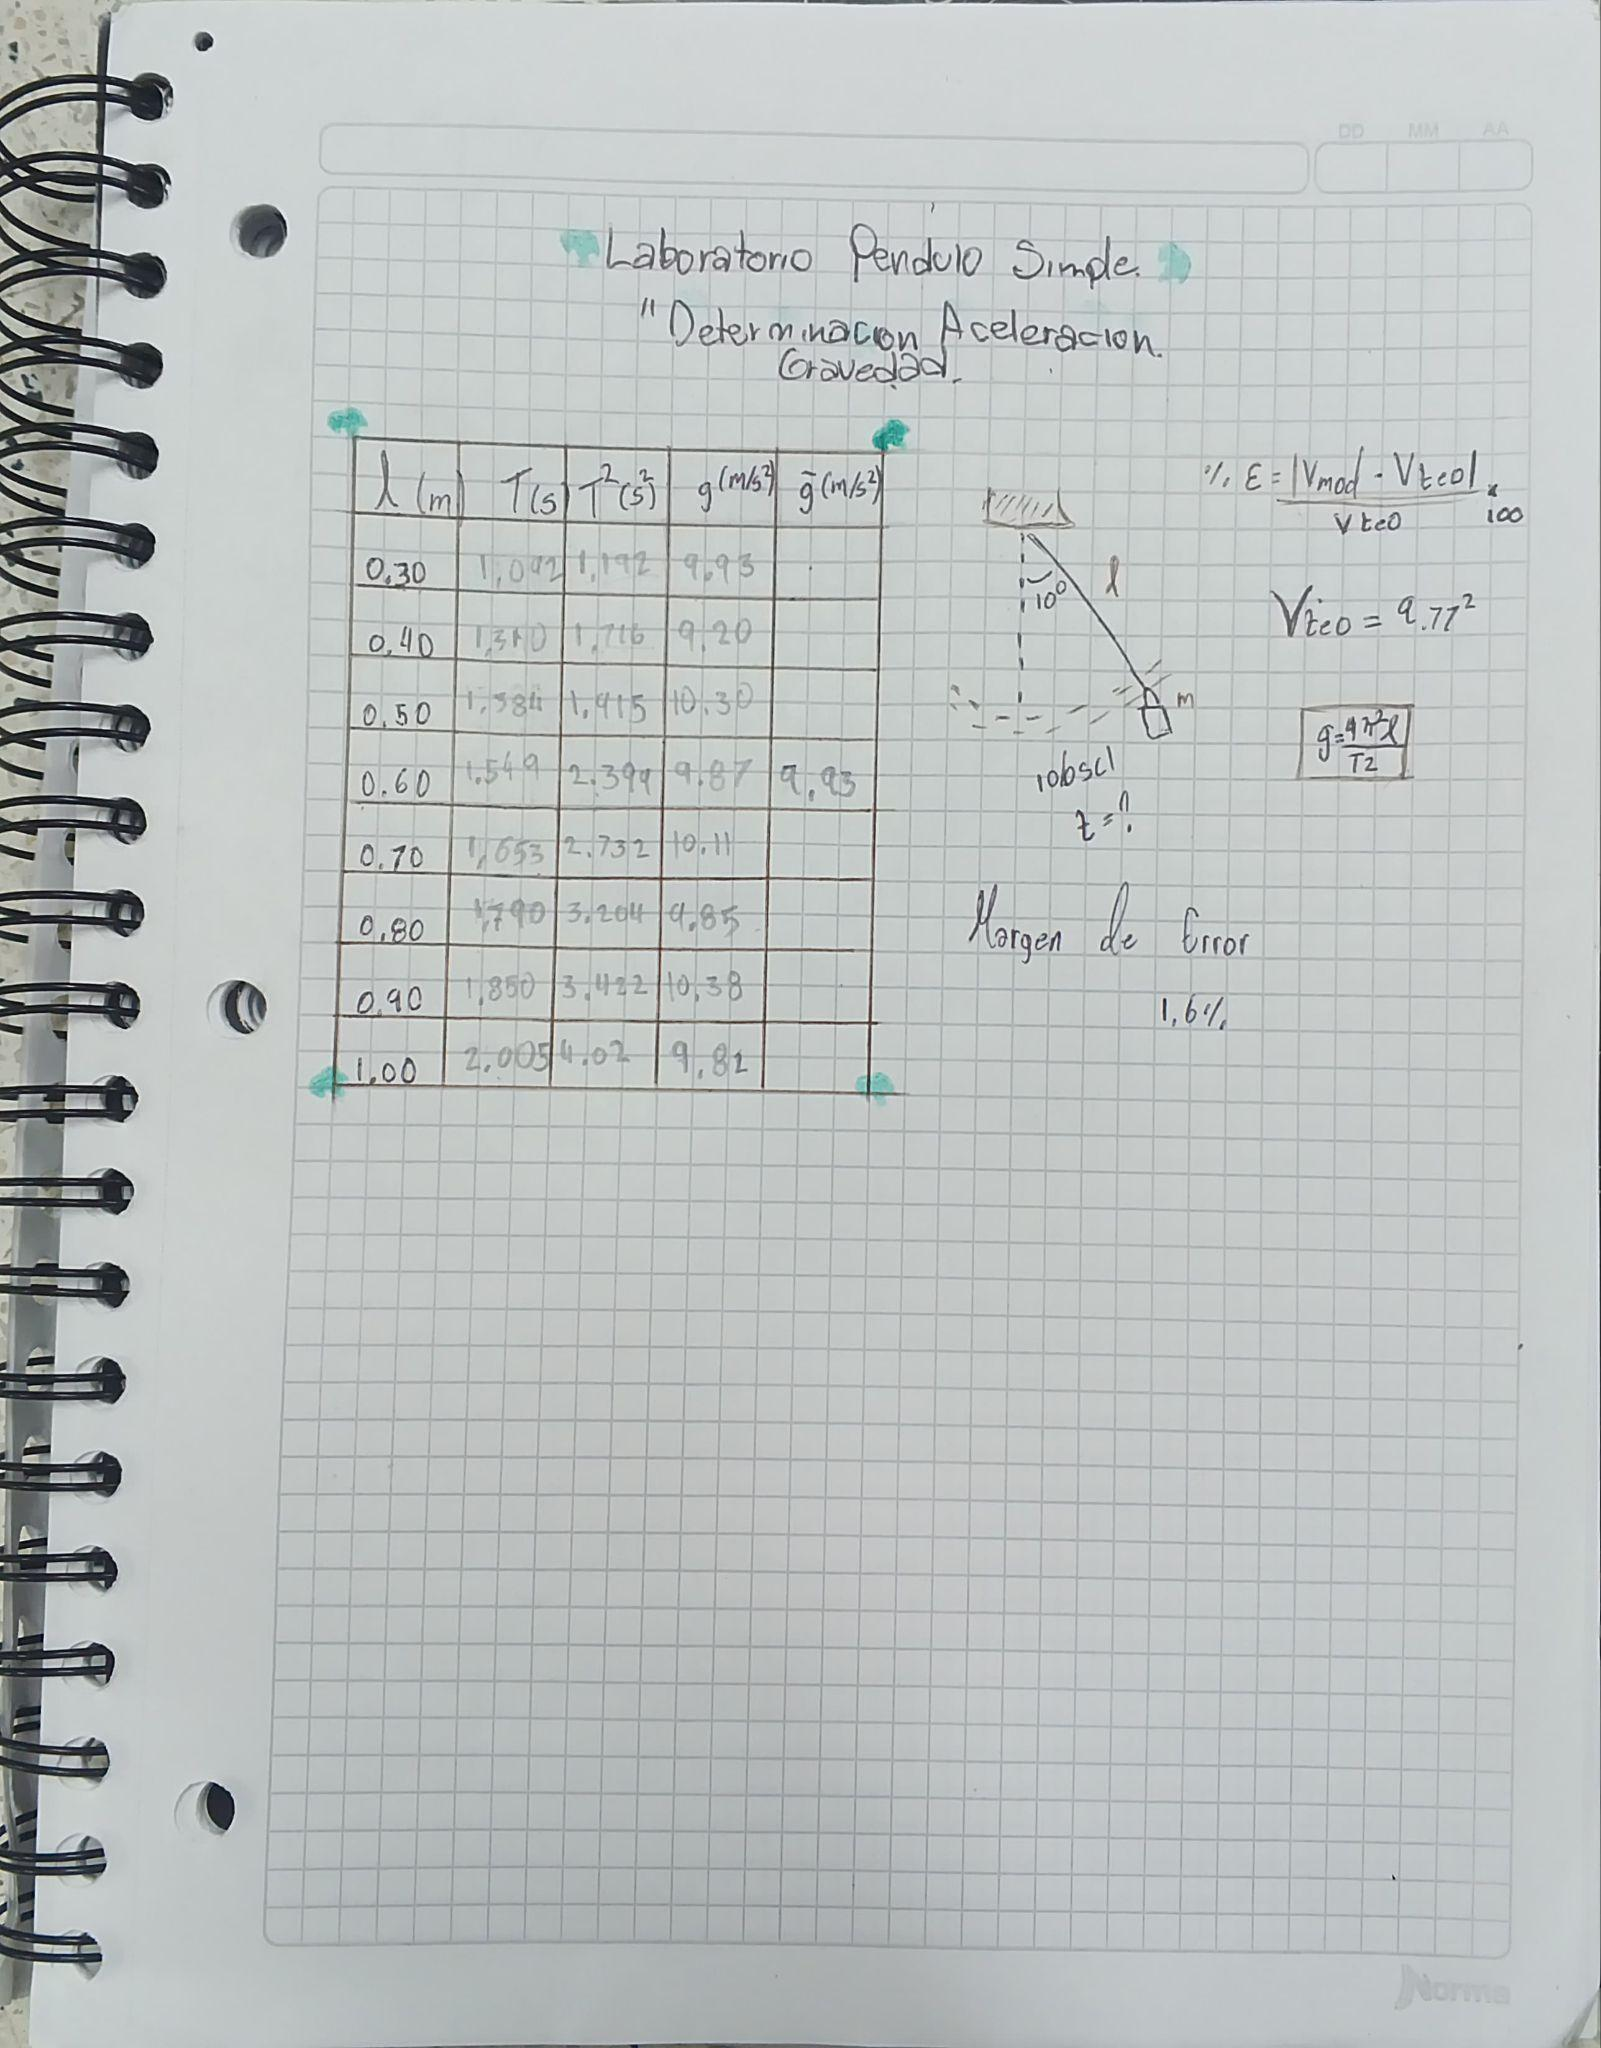 DD MM AA
Laboratorio Pendulo Simple.
"Determinacion Aceleracion.
Gravedad.
l (m) T(s) T²(s²) g(m/s²) g̅(m/s²)
0.30 1,092 1,192 9.93
0.40 1,310 1,716 9.20
0.50 1,384 1,915 10.30
0.60 1.549 2.399 9.87 9.93
0.70 1,653 2.732 10.11
0.80 1,790 3.204 9.85
0.90 1,850 3.422 10,38
1.00 2.005 4.02 9.82
10° l
m
10 oscl
t=?
% E = |Vmod - Vteo| x 100
Vteo
Vteo = 9.77²
g=4π²l
T2
Margen de Error
1,6%
Norma